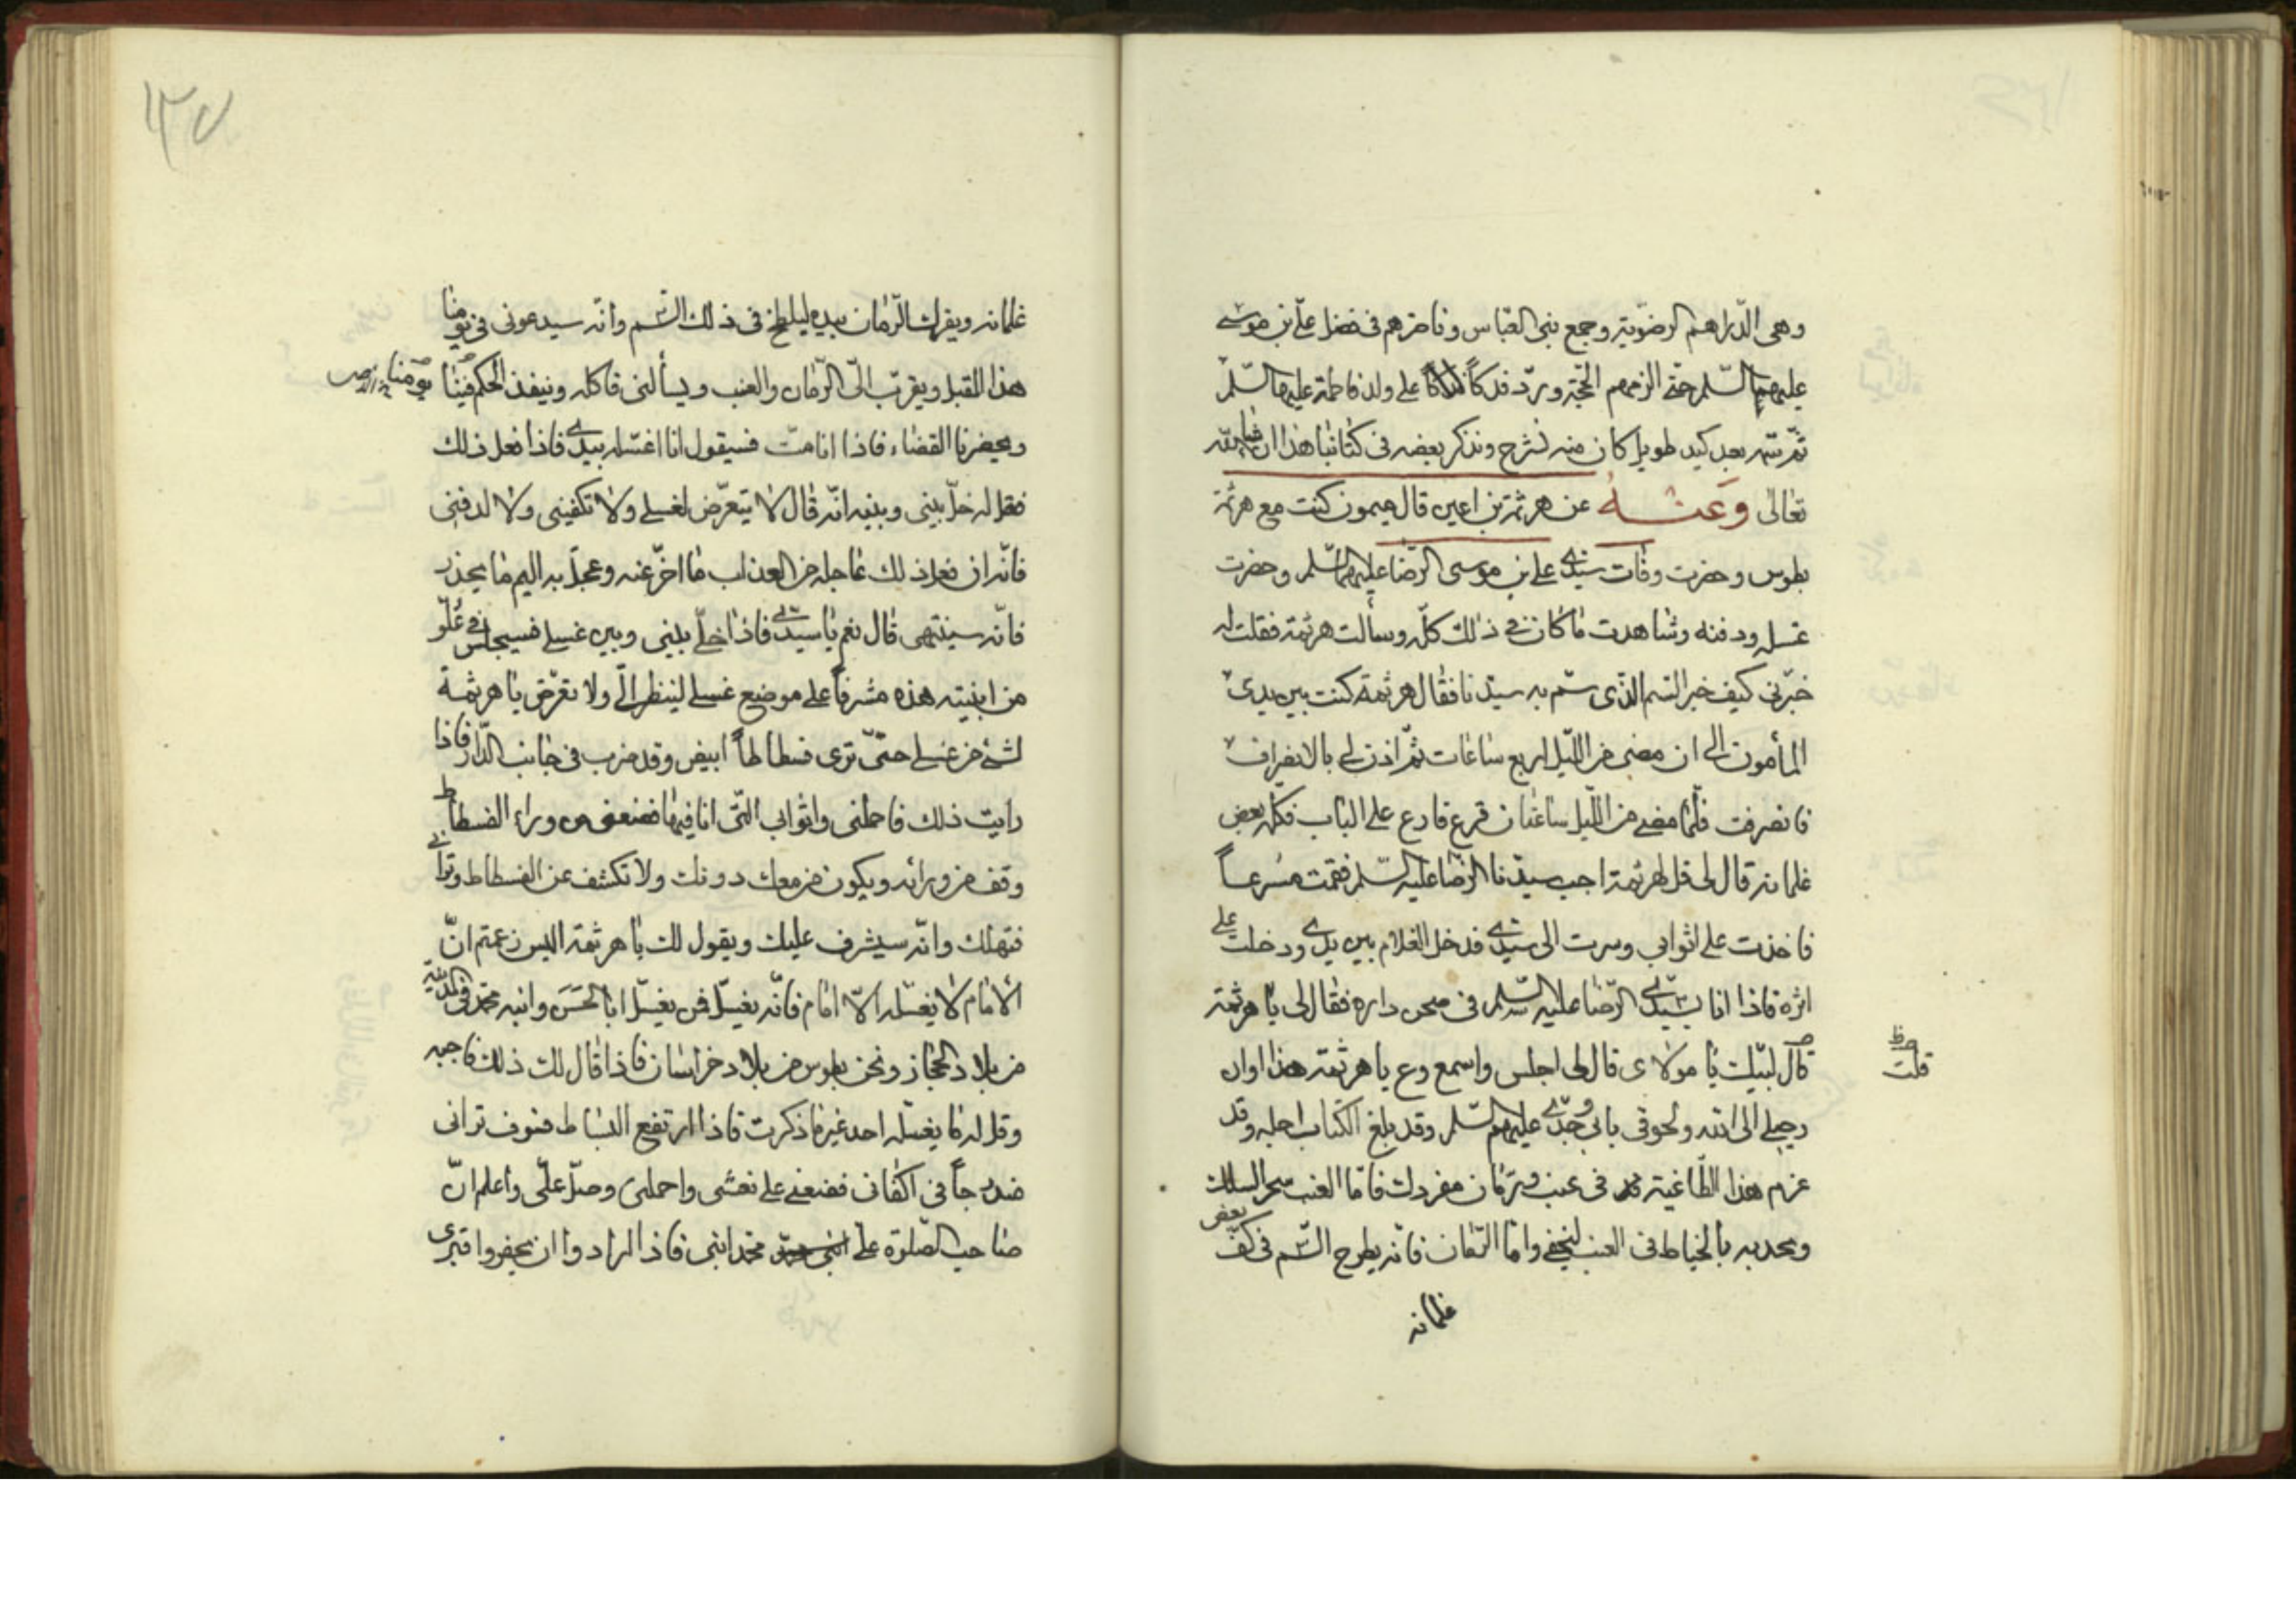 وهي الدّراهم الرضويّة وجمع بني العبّاس وناظرهم في فضل عليّ بن موسى
عليهما السّلم حتّى الزمهم الحجّة وردّ فدكاً على ولد فاطمة عليها السّلم
ثمّ سمّه بعد كيد طويل كان منه نشرح ونذكر بعضه في كتابنا هذا ان شاء الله
تعالى وعنه عن هرثمة بن اعين قال ميمون كنت مع هرثمة
بطوس وحضرت وفات سيّدي علي بن موسى الرّضا عليهما السّلم وحضرت
غسله ودفنه وشاهدت ما كان في ذلك كلّه وسألت هرثمة فقلت له
خبّرني كيف خبر السّم الذّي سمّ به سيّدنا فقال هرثمة كنت بين يدي
المأمون الى ان مضى من اللّيل اربع ساعات ثمّ اذن لي بالانصراف
فانصرفت فلّما مضى من اللّيل ساعتان قرع قارع على الباب فكلّمه بعض
غلمانه قال لي قل لهرثمة اجب سيّدنا الرّضا عليه السّلم فقمت مسرعاً
فاخذت على اثوابي وسرت الى سيّدي فدخل الغلام بين يدي ودخلت على
اثره فاذا انا بسيّدي الرّضا عليه السّلم في صحن داره فقال لي يا هرثمة
قال لبّيك يا مولاى قال لي اجلس واسمع وع يا هرثمة هذا اوان
قلت
رحيلي الى الله ولحوقي بابي وجدّي عليهم السّلم وقد بلغ الكتاب اجله وقد
عزم هذا الطّاغية في عنب ورمّان مفروك فامّا العنب
بالخياط في العنب ليخفى وامّا الرّمّان فانّه يطرح السّم في كفّ بعض
غلمانه
١٣٧
غلمانه ويفرك الرّمّان بيده ليلطخ في ذلك السّم وانّه سيدعوني في يومنا
هذا المقبل ويقرّب اليّ الرّمّان والعنب ويسألني فاكله وينفذ الحكم فينا
يومنا
ويحضرنا القضاء فاذا انا متّ فسيقول انا اغسّله بيدي فاذا فعل ذلك
فقل له خلّ بيني وبينه انّه قال لا يتعرّض لغسلي ولا تكفيني ولا لدفني
فانّه ان فعل ذلك عاجله من العذاب ما اخّر عنه وعجلّ به اليم ما يحذر
فانّه سينتهى قال نعم يا سيّدي فاذا خلّي بيني وبين غسلي فسيجلس في علّو
من ابنيته هذه مشرفاً على موضع غسلي لينظر اليّ ولا تعرّض يا هرثمة
لشئ من غسلي حتّى ترى فسطاطاً ابيض وقد ضرب في جانب الدّار فاذا
رايت ذلك فاحملني واثوابي التّي انا فيها فضعني من وراء الفسطاط
وقف من ورائه ويكون من معك دونك ولا تكشف عن الفسطاط وتراني
فتهلك وانّه سيشرف عليك ويقول لك يا هرثمة اليس زعمتم انّ
الأمام لا يغسّله الاّ امام فانّه يغسّل فمن يغسّل ابا الحسن وابنه محمّد في المدينة
من بلاد الحجاز ونحن بطوس من بلاد خراسان فاذا قال لك ذلك فاجبه
وقل له ما يغسّله احد غير ما ذكرت فاذا ارتفع الفسطاط فسوف تراني
مدرجاً في اكفاني فضعني على نعشى واحملني وصلّ عليّ واعلم انّ
صاحب الصّلوة عليّ محمّد ابني فاذا ارادوا ان يحفروا قبرى